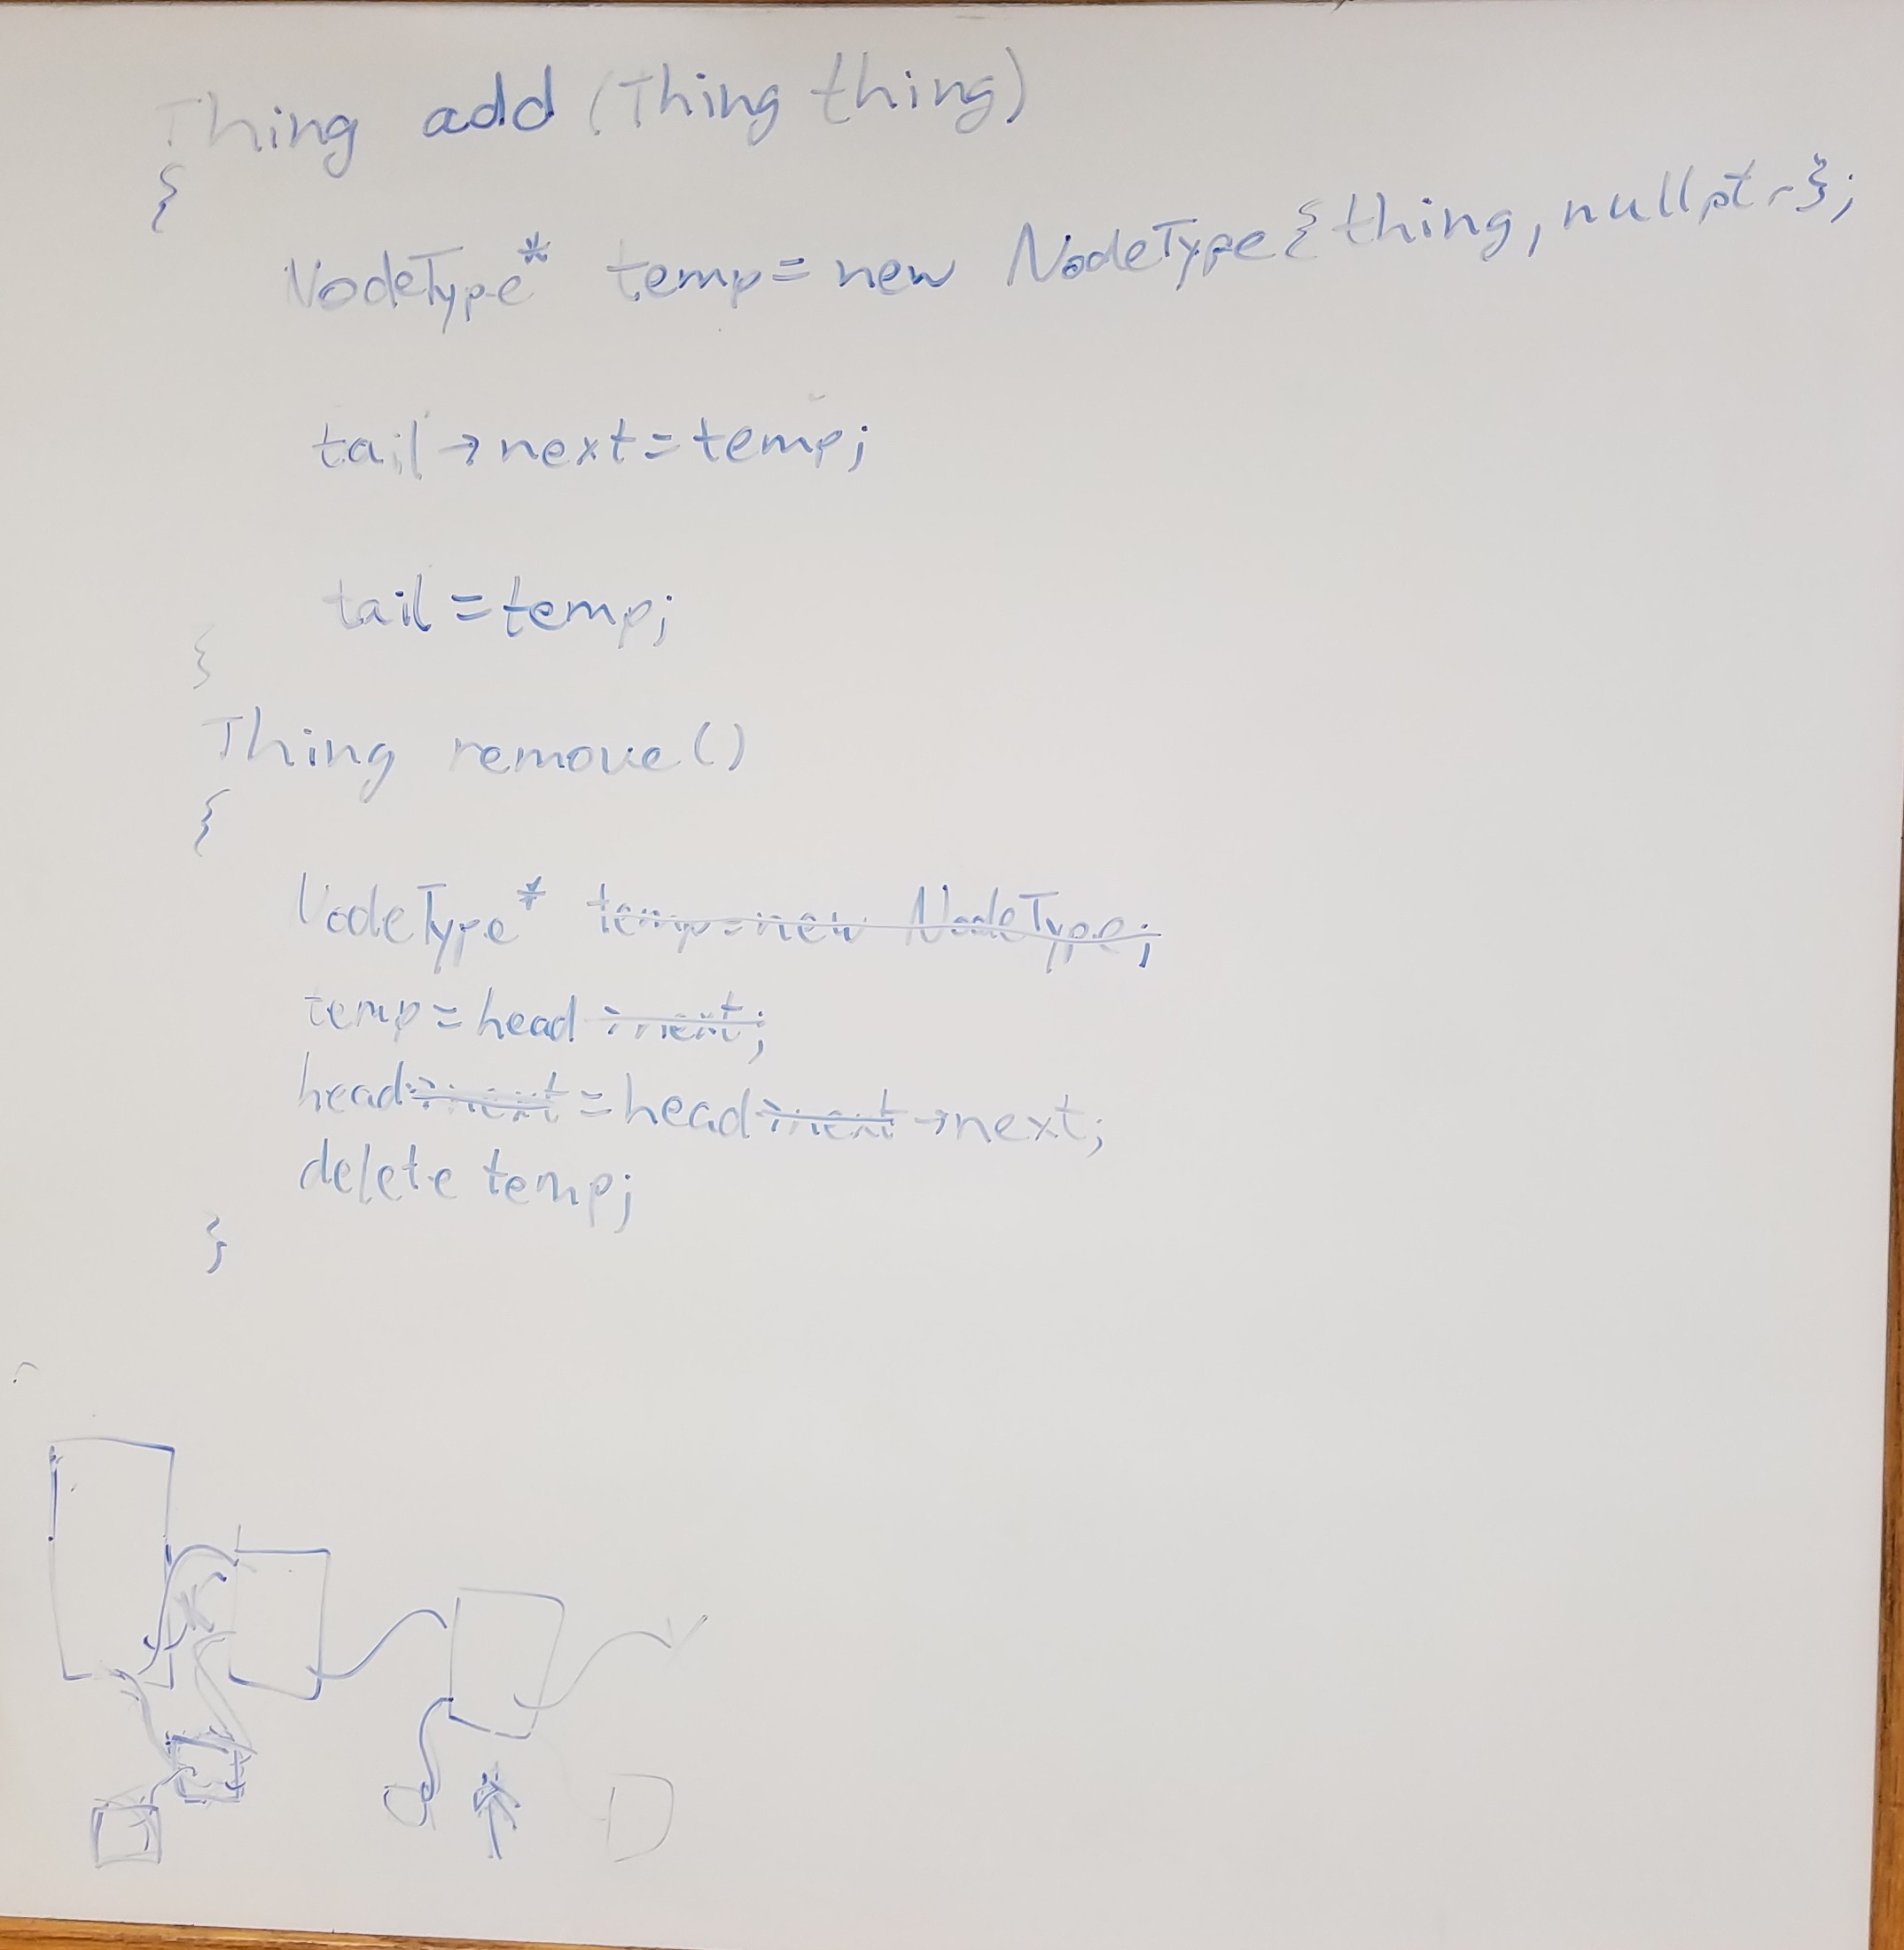 Thing add (Thing thing)
{
NodeType* temp = new NodeType{thing, nullptr};
tail→next = temp;
tail = temp;
}
Thing remove()
{
NodeType* temp = new NodeType;
temp = head→next;
head→next = head→next→next;
delete temp;
}